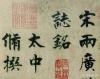 宋兩廣
誌銘
太中
脩撰